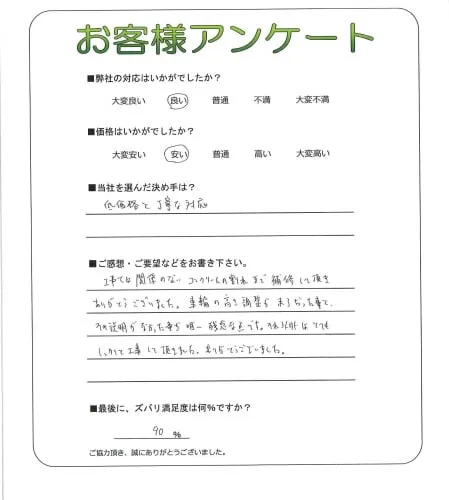 お客様アンケート
■弊社の対応はいかがでしたか？
大変良い 良い 普通 不満 大変不満
■価格はいかがでしたか？
大変安い 安い 普通 高い 大変高い
■当社を選んだ決め手は？
低価格と丁寧な対応
■ご感想・ご要望などをお書き下さい。
工事とは関係のない コンクリートの割れまで補修して頂き
ありがとうございました。車輪の高さ調整が来なかった事と、
その説明がなかった事が唯一残念な点です。それ以外はとても
しっかり工事して頂きました。ありがとうございました。
■最後に、ズバリ満足度は何%ですか？
90 %
ご協力頂き、誠にありがとうございました。